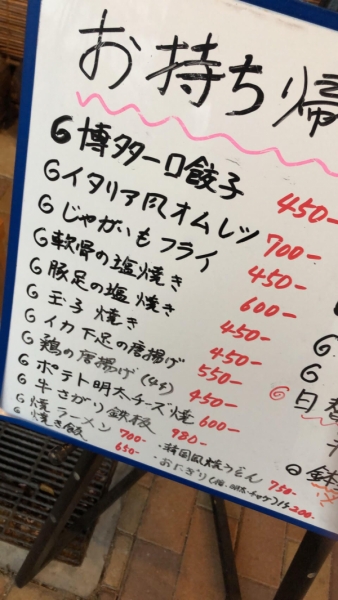 お持ち帰
博多一口餃子 450-
イタリア风オムレツ 700-
じゃがいもフライ 450-
軟骨の塩焼き 600-
豚足の塩焼き 450-
玉子焼き 450-
イカ下足の唐揚げ 550-
鶏の唐揚げ(4ヶ) 450-
ポテト明太チーズ焼 600-
牛さがり鉄板 980-
焼ラーメン 700- 韓国風焼うどん 750-
焼き飯 650- おにぎり 200-